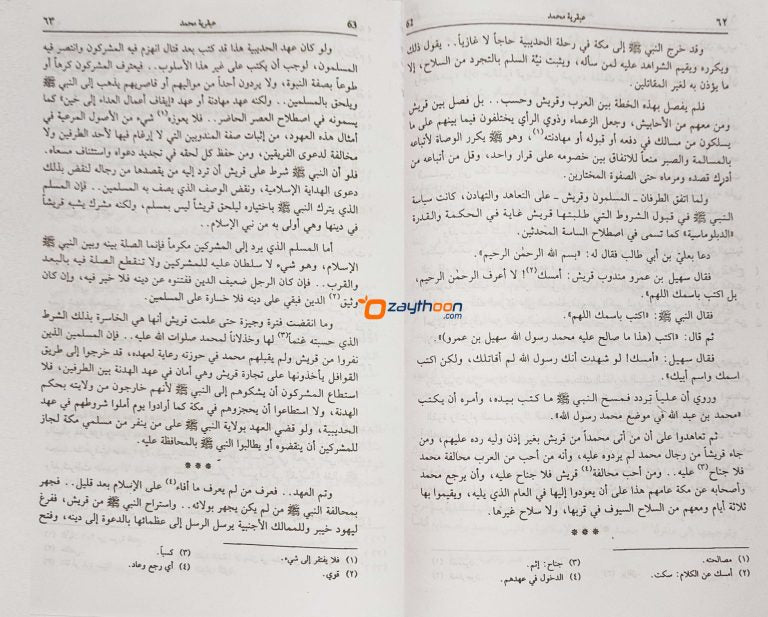 ٦٢
عبقرية محمد
62
وقد خرج النبي ﷺ إلى مكة في رحلة الحديبية حاجاً لا غازياً.. يقول ذلك
ويكرره ويقيم الشواهد عليه لمن سأله، ويثبت نيَّة السلم بالتجرد من السلاح، إلا
ما يؤذن به لغير المقاتلين.
فلم يفصل بهذه الخطة بين العرب وقريش وحسب.. بل فصل بين قريش
ومن معهم من الأحابيش، وجعل الزعماء وذوي الرأي يختلفون فيما بينهم على ما
يسلكون من مسالك في دفعه أو قبوله أو مهادنته(١)، وهو ﷺ يكرر الوصاة لأتباعه
بالمسالمة والصبر منعاً للاتفاق بين خصومه على قرار واحد، وقل من أتباعه من
أدرك قصده ومرماه حتى الصفوة المختارين.
ولما اتفق الطرفان ـ المسلمون وقريش ـ على التعاهد والتهادن، كانت سياسة
النبي ﷺ في قبول الشروط التي طلبتها قريش غاية في الحكمة والقدرة
«الدبلوماسية» كما تسمى في اصطلاح الساسة المحدثين.
دعا بعليّ بن أبي طالب فقال له: «بسم الله الرحمٰن الرحيم».
فقال سهيل بن عمرو مندوب قريش: أمسك(٢)! لا أعرف الرحمٰن الرحيم،
بل اكتب باسمك اللهم».
فقال النبي ﷺ: «اكتب باسمك اللهم».
ثم قال: «اكتب (هذا ما صالح عليه محمد رسول الله سهيل بن عمرو)».
فقال سهيل: «أمسك! لو شهدت أنك رسول الله لم أقاتلك، ولكن اكتب
اسمك واسم أبيك».
وروي أن علـياً تردد فمسح النبي ﷺ ما كتب بيده، وأمره أن يكتب
«محمد بن عبد الله في موضع محمد رسول الله».
ثم تعاهدوا على أن من أتى محمداً من قريش بغير إذن وليه رده عليهم، ومن
جاء قريشاً من رجال محمد لم يردوه عليه، وأنه من أحب من العرب محالفة محمد
فلا جناح(٣) عليه.. ومن أحب محالفة(٤) قريش فلا جناح عليه، وأن يرجع محمد
وأصحابه عن مكة عامهم هذا على أن يعودوا إليها في العام الذي يليه، ويقيموا بها
ثلاثة أيام ومعهم من السلاح السيوف في قربها، ولا سلاح غيرها.
***
(١) مصالحته.
(٣) جناح: إثم.
(٢) أمسك عن الكلام: سكت.
(٤) الدخول في عهدهم.
63
عبقرية محمد
٦٣
ولو كان عهد الحديبية هذا قد كتب بعد قتال انهزم فيه المشركون وانتصر فيه
المسلمون، لوجب أن يكتب على غير هذا الأسلوب.. فيعترف المشركون كرهاً أو
طوعاً بصفة النبوة، ولا يردون أحداً من مواليهم أو قاصريهم يذهب إلى النبي ﷺ
ويلحق بالمسلمين.. ولكنه عهد مهادنة أو عهد «إيقاف أعمال العداء إلى حين» كما
يسمونه في اصطلاح العصر الحاضر.. فلا يعوزه(١) شيء من الأصول المرعية في
أمثال هذه العهود، من إثبات صفة المندوبين التي لا إرغام فيها لأحد الطرفين ولا
مخالفة لدعوى الفريقين، ومن حفظ كل لحقه في تجديد دعواه واستئناف مسعاه.
فلو أن النبي ﷺ شرط على قريش أن ترد إليه من يقصدها من رجاله لنقض بذلك
دعوى الهداية الإسلامية، ونقض الوصف الذي يصف به المسلمين.. فإن المسلم
الذي يترك النبي ﷺ باختياره ليلحق قريشاً ليس بمسلم، ولكنه مشرك يشبه قريشاً
في دينها وهي أولى به من نبي الإسلام..
أما المسلم الذي يرد إلى المشركين مكرهاً فإنما الصلة بينه وبين النبي ﷺ
الإسلام، وهو شيء لا سلطان عليه للمشركين ولا تنقطع الصلة فيه بالبعد
والقرب.. فإن كان الرجل ضعيف الدين ففتنوه عن دينه فلا خير فيه، وإن كان
وثيق(٢) الدين فبقي على دينه فلا خسارة على المسلمين.
وما انقضت فترة وجيزة حتى علمت قريش أنها هي الخاسرة بذلك الشرط
الذي حسبته غنماً(٣) لها وخذلاناً لمحمد صلوات الله عليه.. فإن المسلمين الذين
نفروا من قريش ولم يقبلهم محمد في حوزته رعاية لعهده، قد خرجوا إلى طريق
القوافل يأخذونها على تجارة قريش وهي أمان في عهد الهدنة بين الطرفين، فلا
استطاع المشركون أن يشكوهم إلى النبي ﷺ لأنهم خارجون من ولايته بحكم
الهدنة، ولا استطاعوا أن يحجزوهم في مكة كما أرادوا يوم أملوا شروطهم في عهد
الحديبية، ولو قضي العهد بولاية النبي ﷺ على من ينفر من مسلمي مكة لجاز
للمشركين أن ينقضوه أو يطالبوا النبي ﷺ بالمحافظة عليه.
***
وتم العهد.. فعرف من لم يعرف ما أفاء(٤) على الإسلام بعد قليل.. فجهر
بمحالفة النبي ﷺ من لم يكن يجهر بولائه.. واستراح النبي ﷺ من قريش، ففرغ
ليهود خيبر وللممالك الأجنبية يرسل الرسل إلى عظمائها بالدعوة إلى دينه، وفتح
(١) فلا يفتقر إلى شيء.
(٣) كسباً.
(٢) قوي.
(٤) أي رجع وعاد.
zaythoon
.com